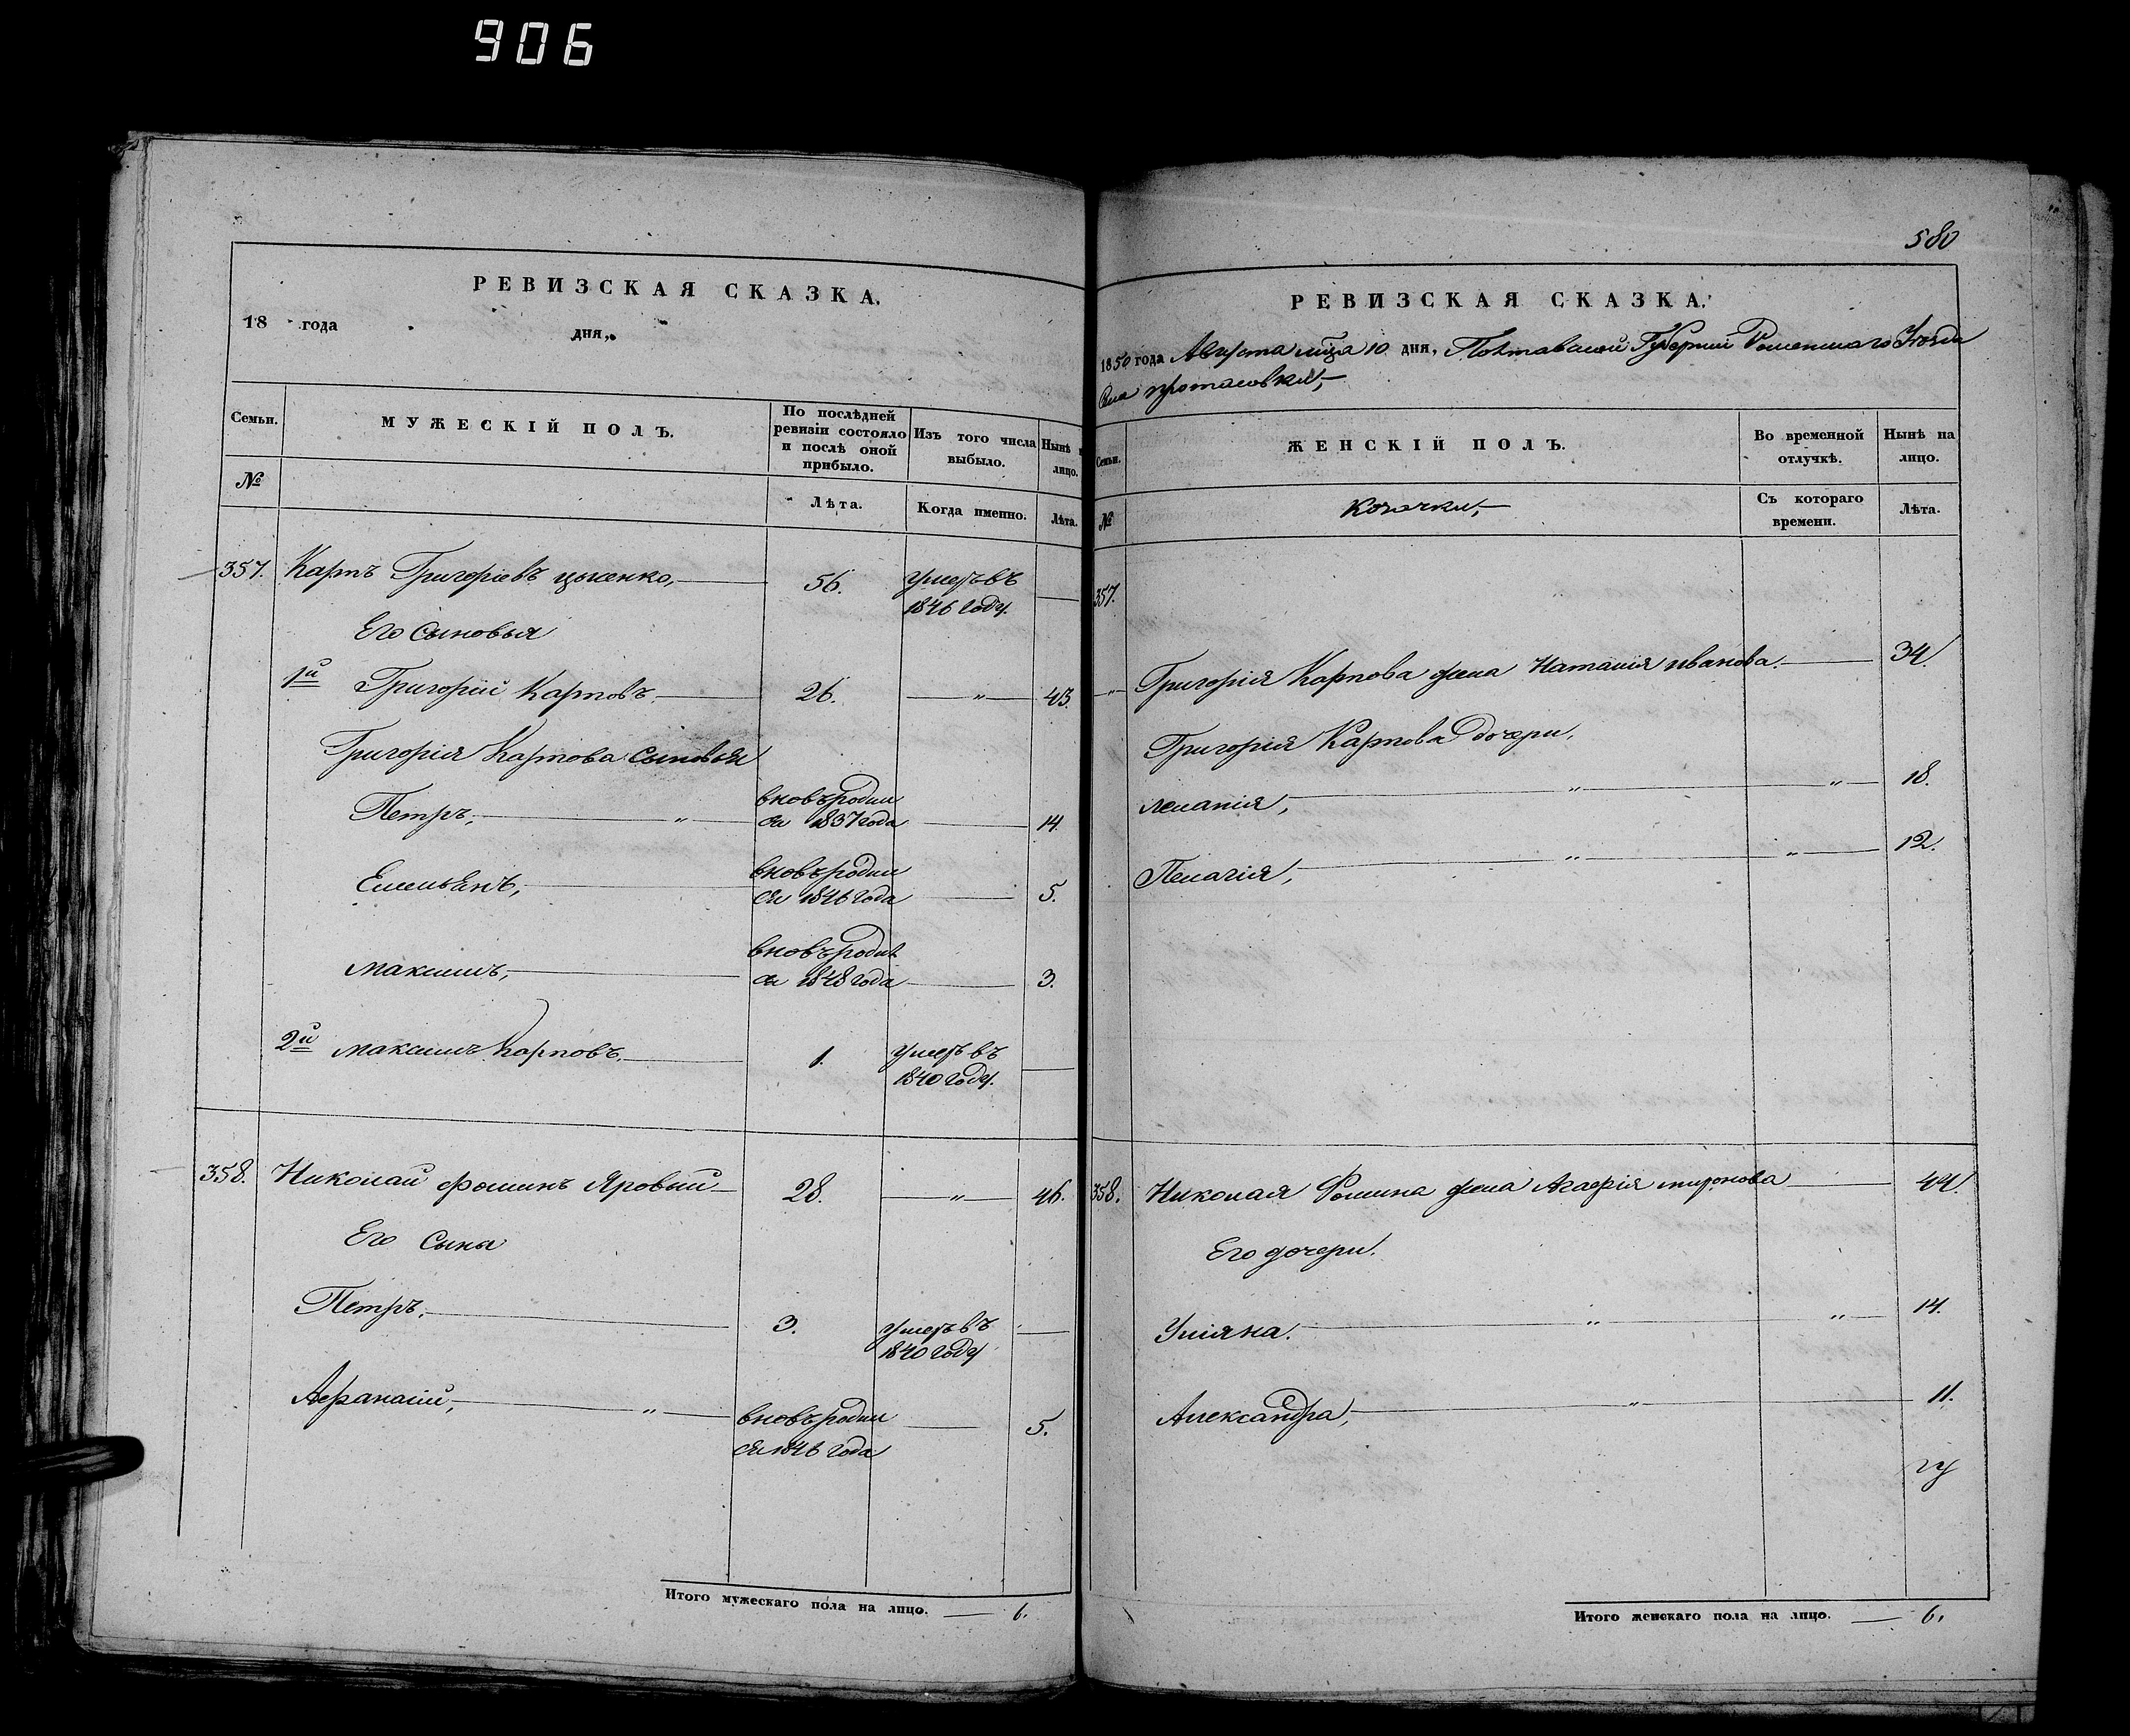 906
РЕВИЗСКАЯ СКАЗКА.
18 года дня,
Семьи.
МУЖЕСКІЙ ПОЛЪ.
По послѣдней ревизіи состояло и послѣ оной прибыло.
Изъ того числа выбыло.
Нынѣ на лицо.
№
Лѣта.
Когда именно.
Лѣта.
357. Карпъ Григоріевъ цысенко, 56. умеръ въ 1846 году.
Его Сыновья
1й Григорій Карповъ. 26. " 43.
Григорія Карпова Сыновья
Петръ, " вновь родил ся 1837 года 14.
Емельянъ, вновь родил ся 1846 года 5.
Максимъ, вновь родил ся 1848 года 3.
2й Максимъ Карповъ. 1. умеръ въ 1840 году.
358. Николай Фоминъ Яровый 28. " 46.
Его Сыны
Петръ. 3. умеръ въ 1840 году
Афанасій, " вновь родил ся 1846 года 5.
Итого мужескаго пола на лицо. 6.
580
РЕВИЗСКАЯ СКАЗКА.
1850 года Августа мца 10 дня, Полтавской Губерніи Роменскаго Уезда
Села протасовки,
Семьи.
ЖЕНСКІЙ ПОЛЪ.
Во временной отлучкѣ.
Нынѣ на лицо.
№
Козачки,
Съ котораго времени.
Лѣта.
357.
" Григорія Карпова жена Наталія иванова. 34.
Григорія Карпова дочери,
меланія, " " 18.
Пелагія, " " 12.
358. Николая Фомина жена Агафія миронова 44.
Его дочери.
Уліяна. " " 14.
Александра, " 11.
Итого женскаго пола на лицо. 6.